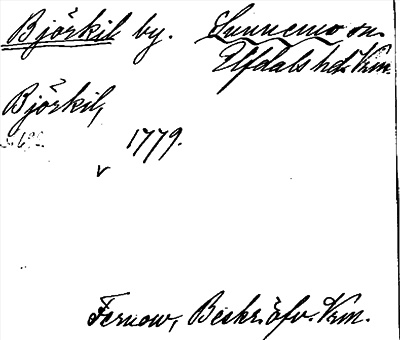 Björkil by. Sunnemo sn.
Älfdals hd. Vrm.
Björkil,
1779.
v
Fernow, Beskr. öfv. Vrm.